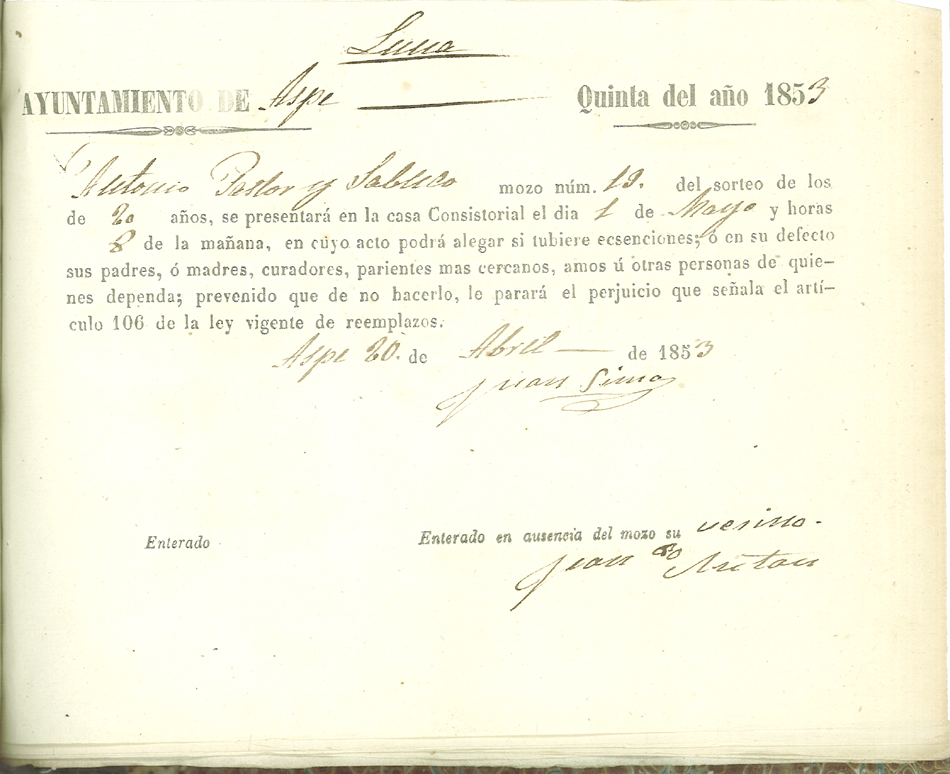 Luna
AYUNTAMIENTO DE Aspe Quinta del año 1853
Antonio Pastor y Sabuco mozo núm. 19. del sorteo de los
de 20 años, se presentará en la casa Consistorial el dia 1 de Mayo y horas
8 de la mañana, en cuyo acto podrá alegar si tubiere ecsenciones; ó en su defecto
sus padres, ó madres, curadores, parientes mas cercanos, amos ú otras personas de quie-
nes dependa; prevenido que de no hacerlo, le parará el perjuicio que señala el artí-
culo 106 de la ley vigente de reemplazos.
Aspe 20. de Abril de 1853
Juan
Enterado Enterado en ausencia del mozo su vesino.
Juan Anton